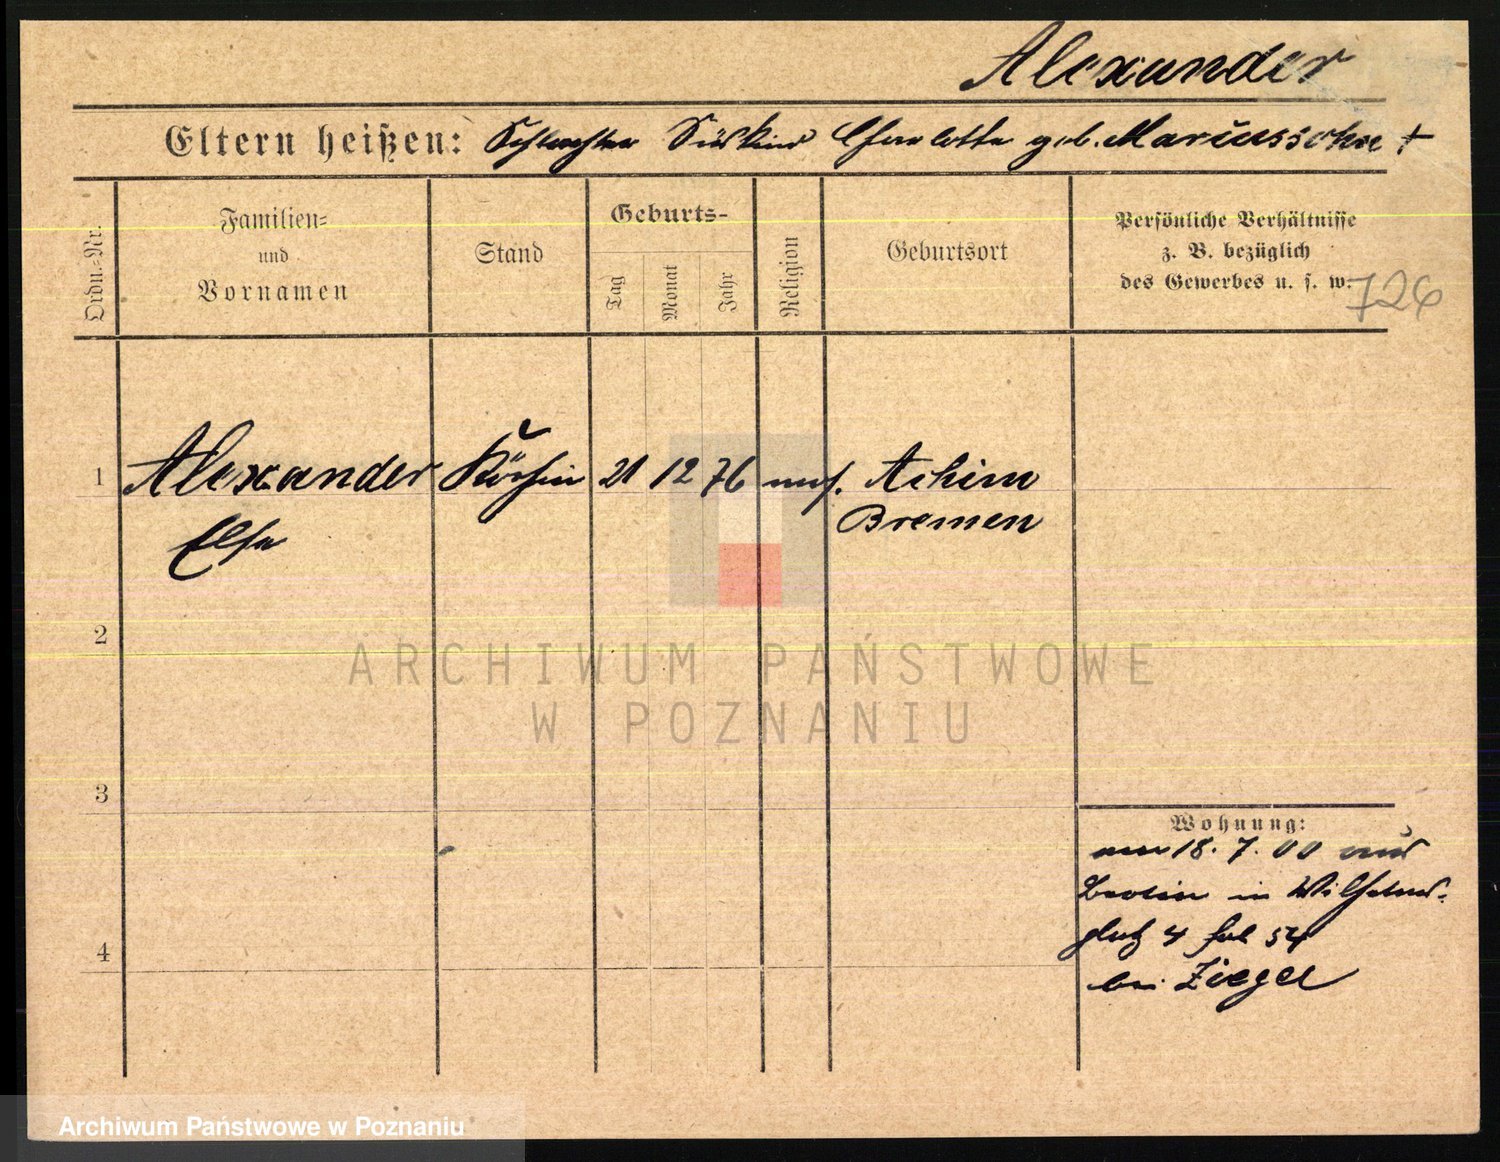 Alexander
Eltern heißen: Schlachter Süskind Charlotte geb. Mariussohn †
Ordn.-Nr.
Familien-
und
Vornamen
Stand
Geburts-
Tag
Monat
Jahr
Religion
Geburtsort
Persönliche Verhältnisse
z. B. bezüglich
des Gewerbes u. s. w.
726
1 Alexander Köchin 21 12 76 mos. Achim
Elsa Bremen
2
3
4
Wohnung:
18. 7. 00 aus
Berlin in Wilhelms-
platz 4 fol 54
bei Ziegel
ARCHIWUM PAŃSTWOWE
W POZNANIU
Archiwum Państwowe w Poznaniu